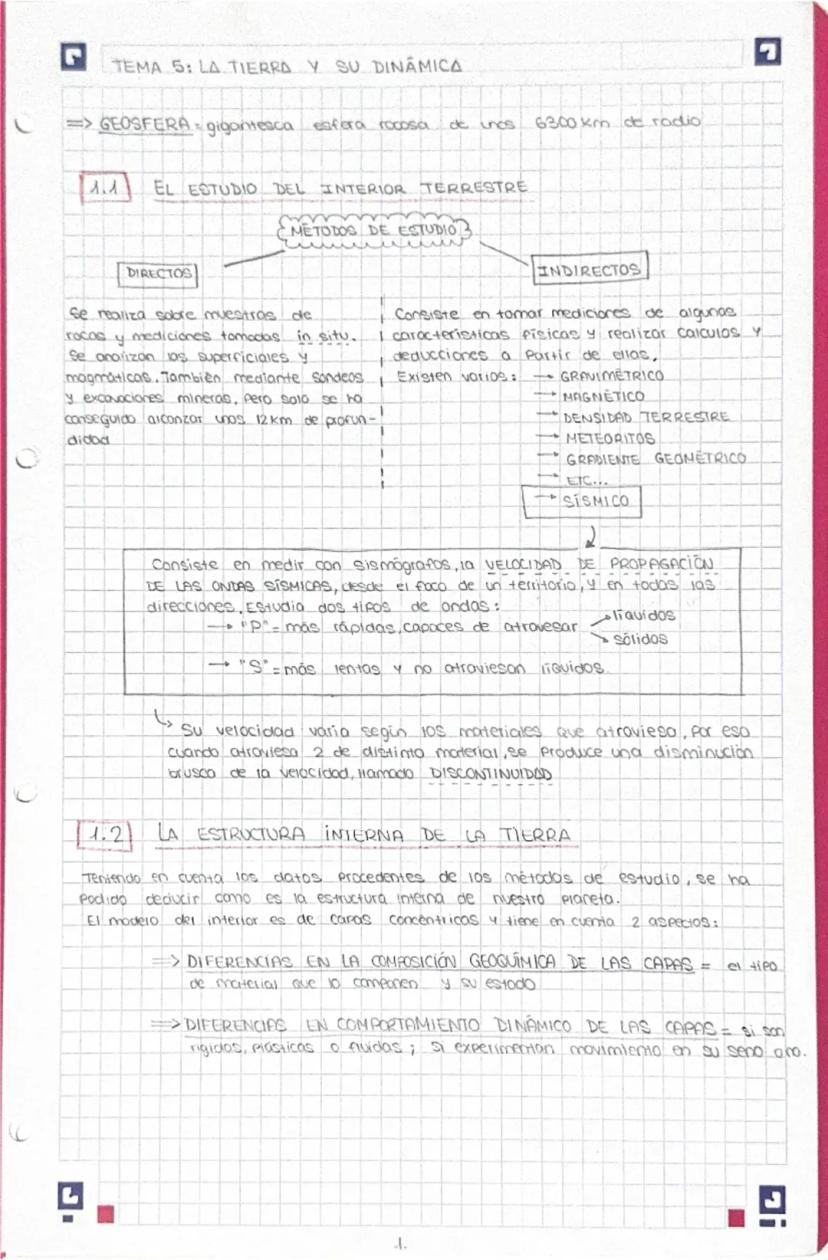 TEMA 5: LA TIERRA Y SU DINÁMICA
=> GEOSFERA = gigantesca esfera rocosa de unos 6300 km de radio
1.1 EL ESTUDIO DEL INTERIOR TERRESTRE
MÉTODOS DE ESTUDIO
DIRECTOS
INDIRECTOS
Se realiza sobre muestras de
rocas y mediciones tomadas in situ.
Se analizan las superficiales y
magmáticas. También mediante sondeos
y excavaciones mineras, pero solo se ha
conseguido alcanzar unos 12 km de profun-
didad
Consiste en tomar mediciones de algunas
características físicas y realizar calculos y
deducciones a partir de ellas.
Existen varios: → GRAVIMÉTRICO
→ MAGNÉTICO
→ DENSIDAD TERRESTRE
→ METEORITOS
→ GRADIENTE GEOMÉTRICO
→ ETC...
→ SÍSMICO
Consiste en medir con sismógrafos, la VELOCIDAD DE PROPAGACIÓN
DE LAS ONDAS SÍSMICAS, desde el foco de un territorio, y en todas las
direcciones. Estudia dos tipos de ondas:
→ "P" = más rápidas, capaces de atravesar → líquidos
→ sólidos
→ "S" = más lentas y no atraviesan líquidos.
↳ Su velocidad varia según los materiales que atraviesa, por eso
cuando atraviesa 2 de distinto material, se produce una disminución
brusca de la velocidad, llamado DISCONTINUIDAD
1.2 LA ESTRUCTURA INTERNA DE LA TIERRA
Teniendo en cuenta los datos procedentes de los métodos de estudio, se ha
podido deducir como es la estructura interna de nuestro planeta.
El modelo del interior es de capas concéntricas y tiene en cuenta 2 aspectos:
=> DIFERENCIAS EN LA COMPOSICIÓN GEOQUÍMICA DE LAS CAPAS = el tipo
de material que lo componen y su estado
=> DIFERENCIAS EN COMPORTAMIENTO DINÁMICO DE LAS CAPAS = si son
rígidas, plásticas o fluidas; si experimentan movimiento en su seno o no.
.1.